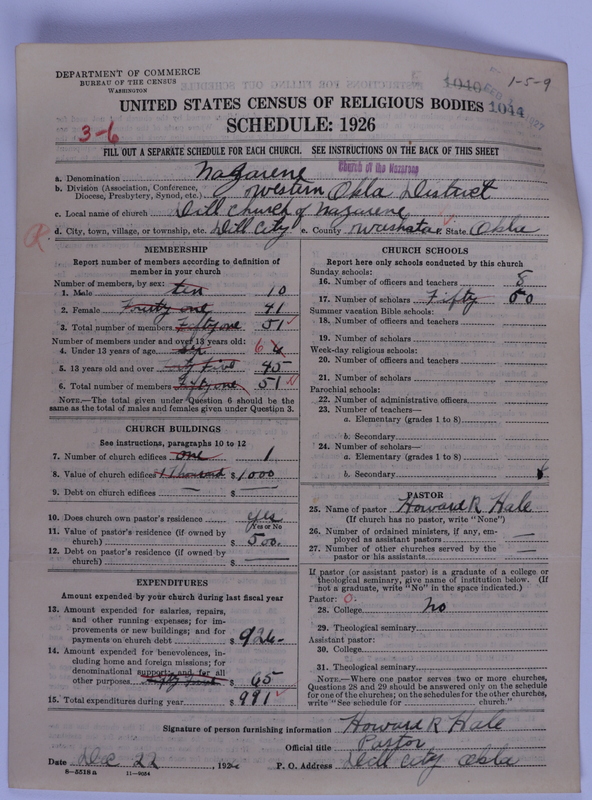 DEPARTMENT OF COMMERCE
BUREAU OF THE CENSUS
WASHINGTON
1040
1-5-9
UNITED STATES CENSUS OF RELIGIOUS BODIES 1044
3-6
SCHEDULE: 1926
FILL OUT A SEPARATE SCHEDULE FOR EACH CHURCH. SEE INSTRUCTIONS ON THE BACK OF THIS SHEET
Church of the Nazarene
a. Denomination Nazarene
b. Division (Association, Conference, Diocese, Presbytery, Synod, etc.) Western Okla District
c. Local name of church Dill Church of Nazarene
d. City, town, village, or township, etc. Dill City e. County Washita f. State Okla
MEMBERSHIP
Report number of members according to definition of
member in your church
Number of members, by sex:
1. Male ten 10
2. Female Fourty one 41
3. Total number of members Fifty one 51
Number of members under and over 13 years old:
4. Under 13 years of age six 6
5. 13 years old and over 45
6. Total number of members Fifty one 51
NOTE.—The total given under Question 6 should be the
same as the total of males and females given under Question 3.
CHURCH BUILDINGS
See instructions, paragraphs 10 to 12
7. Number of church edifices one 1
8. Value of church edifices 1 thousand $ 1000
9. Debt on church edifices — $ —
10. Does church own pastor's residence yes
Yes or No
11. Value of pastor's residence (if owned by
church) $ 500.
12. Debt on pastor's residence (if owned by
church) $ —
EXPENDITURES
Amount expended by your church during last fiscal year
13. Amount expended for salaries, repairs,
and other running expenses; for im-
provements or new buildings; and for
payments on church debt $ 926-
14. Amount expended for benevolences, in-
cluding home and foreign missions; for
denominational support; and for all
other purposes $ 65
15. Total expenditures during year $ 991
CHURCH SCHOOLS
Report here only schools conducted by this church
Sunday schools:
16. Number of officers and teachers 8
17. Number of scholars Fifty 50
Summer vacation Bible schools:
18. Number of officers and teachers
19. Number of scholars
Week-day religious schools:
20. Number of officers and teachers
21. Number of scholars
Parochial schools:
22. Number of administrative officers
23. Number of teachers—
a. Elementary (grades 1 to 8)
b. Secondary
24. Number of scholars—
a. Elementary (grades 1 to 8)
b. Secondary
PASTOR
25. Name of pastor Howard R Hale
(If church has no pastor, write "None")
26. Number of ordained ministers, if any, em-
ployed as assistant pastors —
27. Number of other churches served by the
pastor or his assistants —
If pastor (or assistant pastor) is a graduate of a college or
theological seminary, give name of institution below. (If
not a graduate, write "No" in the space indicated.)
Pastor: O.
28. College No
29. Theological seminary
Assistant pastor:
30. College
31. Theological seminary
NOTE.—Where one pastor serves two or more churches,
Questions 28 and 29 should be answered only on the schedule
for one of the churches; on the schedules for the other churches,
write "See schedule for church."
Signature of person furnishing information Howard R Hale
Official title Pastor
Date Dec 22, 1926 P. O. Address Dill City Okla
8-5518 a 11-9034